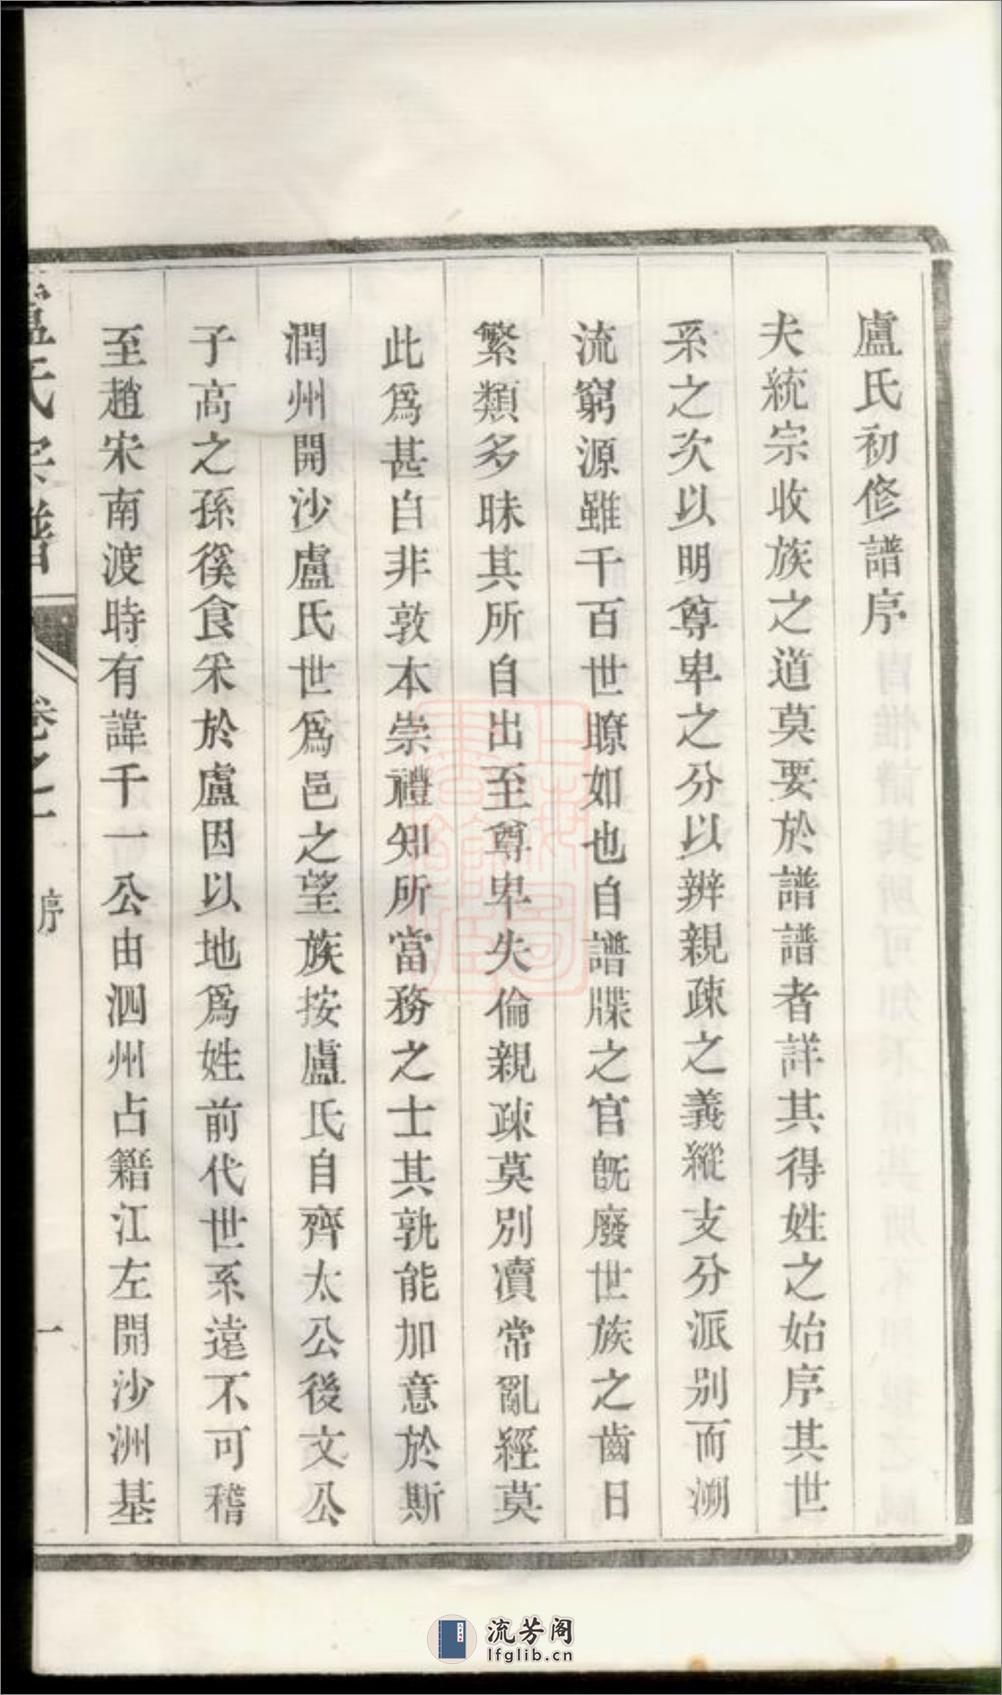 盧氏初修譜序
夫統宗收族之道莫要於譜譜者詳其得姓之始序其世
系之次以明尊卑之分以辨親疎之義縱支分派别而溯
流窮源雖千百世瞭如也自譜牒之官旣廢世族之齒日
繁類多昧其所自出至尊卑失倫親疎莫別瀆常亂經莫
此爲甚自非敦本崇禮知所當務之士其孰能加意於斯
潤州開沙盧氏世爲邑之望族按盧氏自齊太公後文公
子高之孫徯食采於盧因以地爲姓前代世系遠不可稽
至趙宋南渡時有諱千一公由泗州占籍江左開沙洲基
盧氏宗譜
卷之一
序
一
流芳阁
lfglib.cn